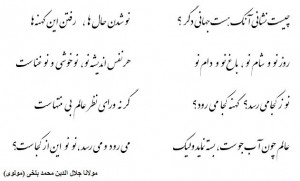 چیست نشانی آنک هست جهانی دگر ؟ نو شدن حال ها ، رفتن این کهنه ها
روز نو و شام نو ، باغ نو و دام نو هر نفس اندیشه نو، نو خوشی و نو غناست
نو ز کجا می رسد؟ کهنه کجا می رود؟ گر نه ورای نظر عالم بی منتهاست
عالم چون آب جوست، بسته نماید ولیک می رود و می رسد، نو نو این از کجاست؟
مولانا جلال الدین محمد بلخی (مولوی)